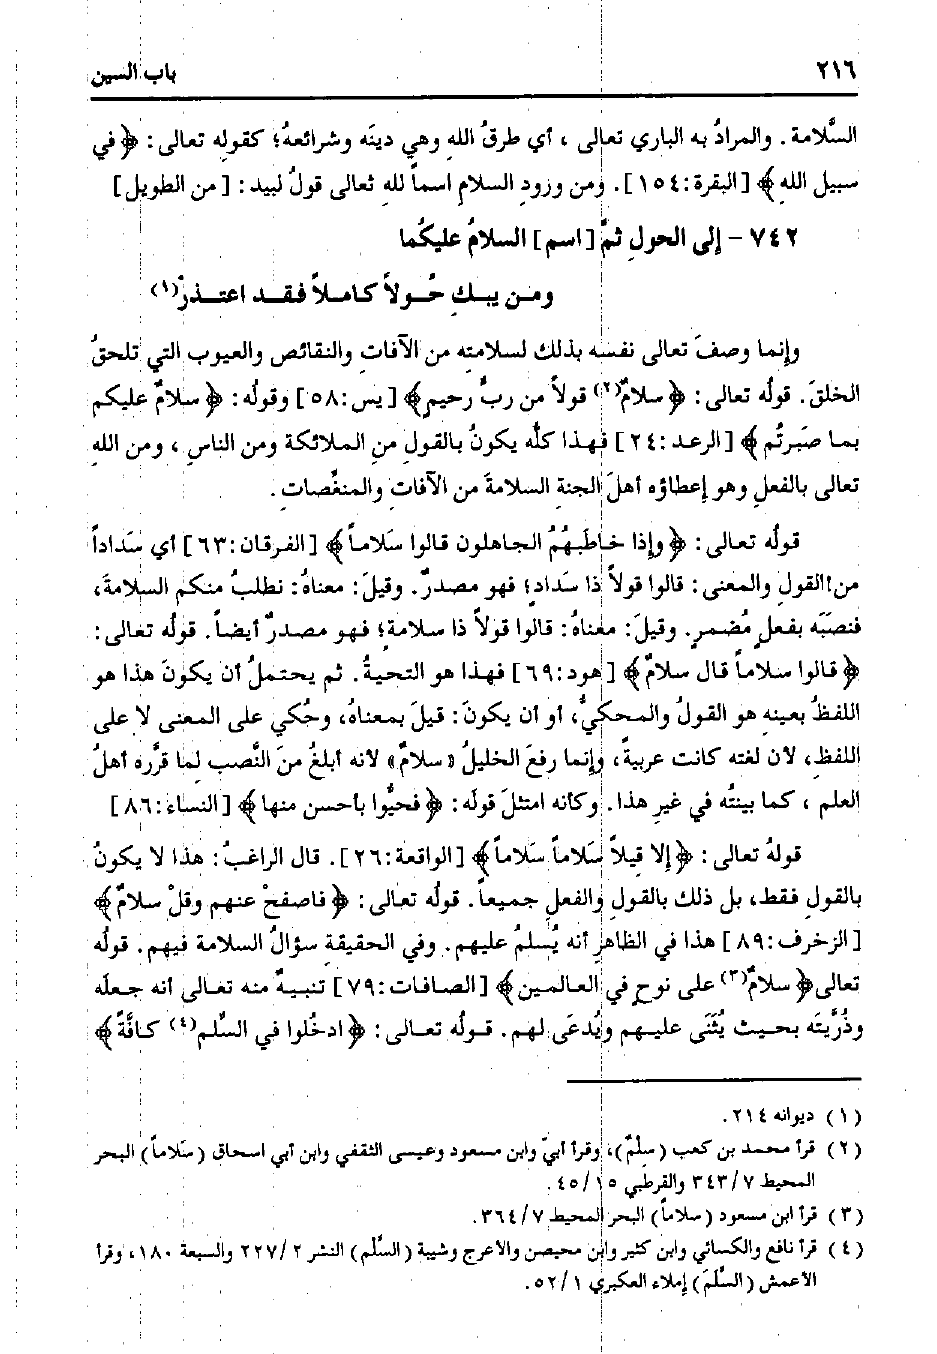 ٢١٦
باب السين
السَّلامة. والمرادُ به الباري تعالى، أي طرقُ اللهِ وهي دينَه وشرائعهُ؛ كقوله تعالى: ﴿في
سبيل الله﴾ [البقرة:١٥٤]. ومن ورودِ السلامِ اسماً للهِ تعالى قولُ لبيد: [من الطويل]
٧٤٢ - إلى الحولِ ثمَّ [اسم] السلامُ عليكُما
ومن يبكِ حُولاً كاملاً فقد اعتذرْ(١)
وإنما وصفَ تعالى نفسَه بذلك لسلامتِه من الآفاتِ والنقائص والعيوب التي تلحقُ
الخلقَ. قولُه تعالى: ﴿سلامٌ(٢) قولاً من ربٌّ رحيم﴾ [يس:٥٨] وقولُه: ﴿سلامٌ عليكم
بما صَبرتُم﴾ [الرعد:٢٤] فهذا كلُّه يكونُ بالقولِ من الملائكة ومن الناسِ، ومن اللهِ
تعالى بالفعلِ وهو إعطاؤه أهلَ الجنة السلامةَ من الآفاتِ والمنغِّصات.
قولُه تعالى: ﴿وإذا خاطَبهُمُ الجاهلون قالوا سَلاماً﴾ [الفرقان:٦٣] أي سَداداً
من القولِ والمعنى: قالوا قولاً ذا سَدادٍ؛ فهو مصدرٌ. وقيلَ: معناهُ: نطلبُ منكم السلامةَ،
فنصبَه بفعلٍ مُضمرٍ. وقيلَ: معناهُ: قالوا قولاً ذا سلامة؛ فهو مصدرٌ أيضاً. قولُه تعالى:
﴿قالوا سلاماً قال سلامٌ﴾ [هود:٦٩] فهذا هو التحيةُ. ثم يحتملُ أن يكونَ هذا هو
اللفظُ بعينهِ هو القولُ والمحكيُّ، أو أن يكونَ: قيلَ بمعناهُ، وحُكي على المعنى لا على
اللفظِ، لأن لغته كانت عربيةً، وإنما رفعَ الخليلُ «سلامٌ» لأنه أبلغُ منَ النَّصب لما قرَّره أهلُ
العلم، كما بينتُه في غيرِ هذا. وكأنه امتثلَ قولَه: ﴿فحيُّوا بأحسن منها﴾ [النساء:٨٦]
قولهُ تعالى: ﴿إلا قيلاً سَلاماً سَلاماً﴾ [الواقعة:٢٦]. قال الراغبُ: هذا لا يكونُ
بالقولِ فقط، بل ذلك بالقولِ والفعلِ جميعاً. قولُه تعالى: ﴿فاصفحْ عنهم وقلْ سلامٌ﴾
[الزخرف:٨٩] هذا في الظاهرِ أنه يُسلمُ عليهم. وفي الحقيقة سؤالُ السلامة فيهم. قولُه
تعالى ﴿سلامٌ(٣) على نوحٍ في العالمين﴾ [الصافات:٧٩] تنبيهٌ منه تعالى أنه جعلَه
وذُرِّيتَه بحيث يُثنَى عليهم ويُدعَى لهم. قولُه تعالى: ﴿ادخُلوا في السِّلم(٤) كافَّةً﴾
(١) ديوانه ٢١٤.
(٢) قرأ محمد بن كعب (سِلْمٌ)، وقرأ أبيّ وابن مسعود وعيسى الثقفي وابن أبي اسحاق (سَلاماً) البحر
المحيط ٣٤٣/٧ والقرطبي ٤٥/١٥.
(٣) قرأ ابن مسعود (سلاماً) البحر المحيط ٣٦٤/٧.
(٤) قرأ نافع والكسائي وابن كثير وابن محيصن والأعرج وشيبة (السَّلم) النشر ٢٢٧/٢ والسبعة ١٨٠، وقرأ
الأعمش (السَّلَم) إملاء العكبري ٥٢/١.